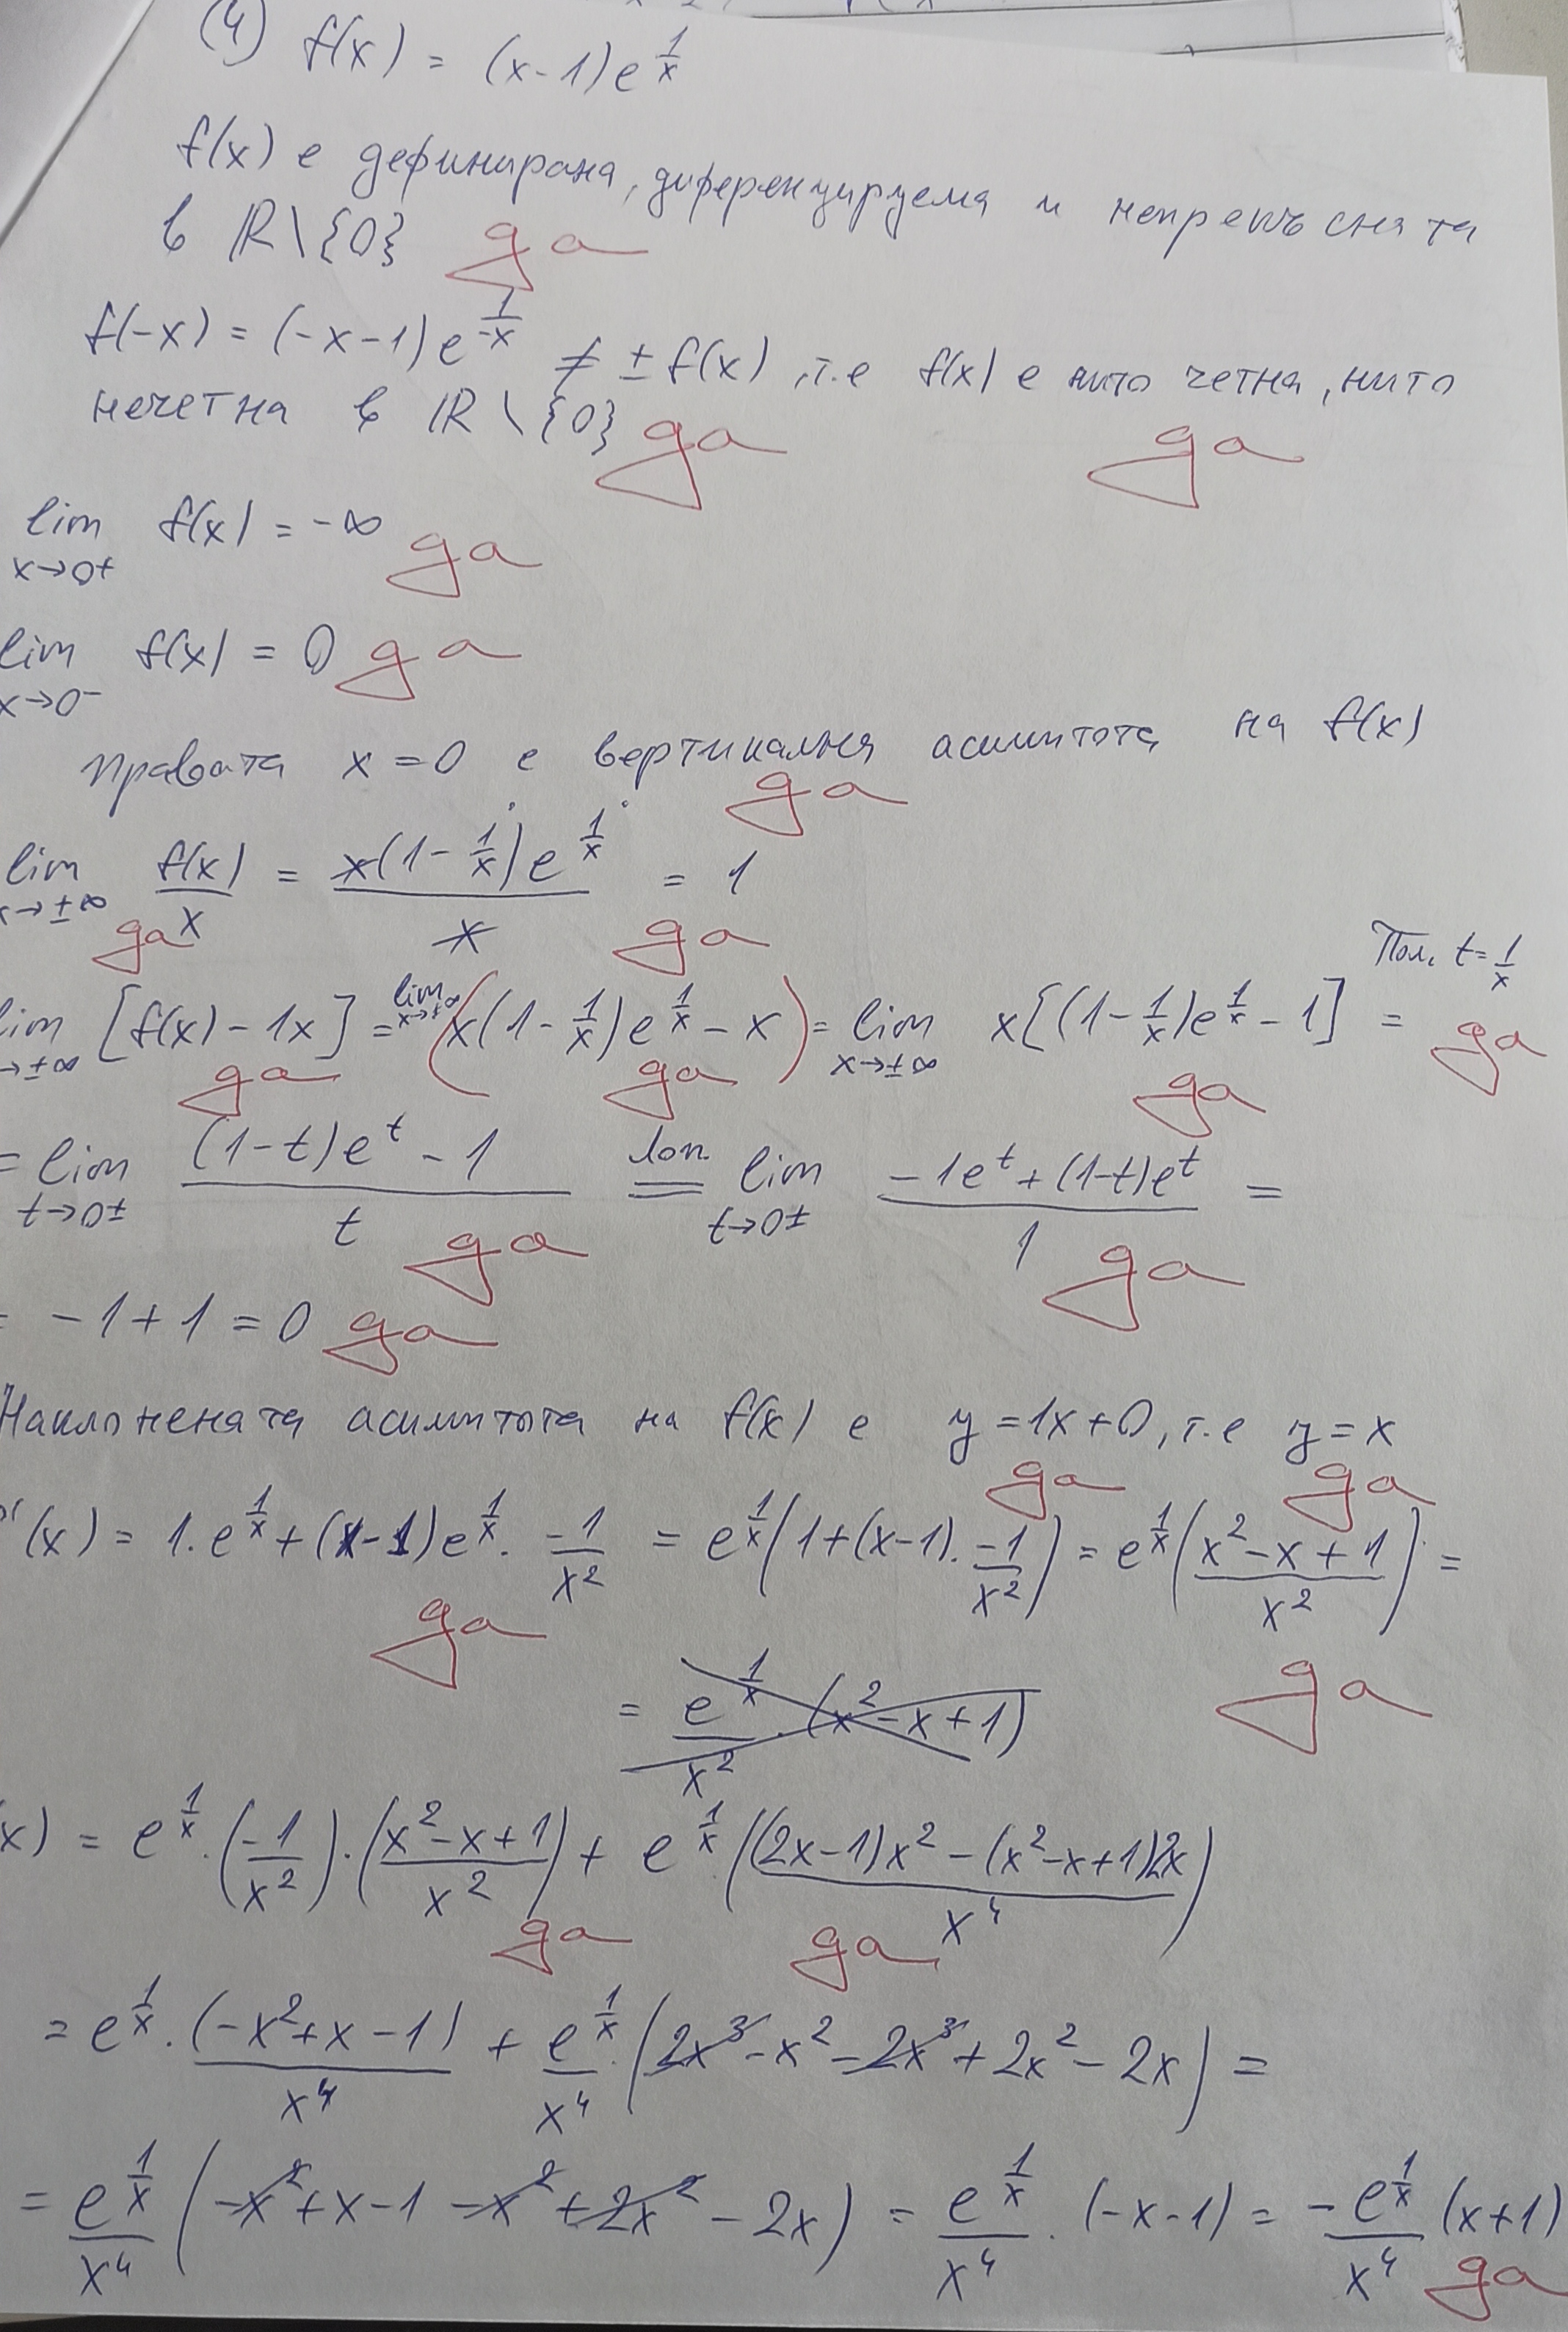 (4) f(x) = (x-1)e^{1/x}
f(x) е дефинирана, диференцируема и непрекъсната
в ℝ\{0} да
f(-x) = (-x-1)e^{1/-x} ≠ ±f(x), т.е f(x) е нито четна, нито
нечетна в ℝ\{0} да да
lim_{x→0+} f(x) = -∞ да
lim_{x→0-} f(x) = 0 да
правата x=0 е вертикална асимптота на f(x)
да
lim_{x→±∞} f(x)/x = x(1-1/x)e^{1/x}/x = 1
да да
Пол. t=1/x
lim_{→±∞} [f(x)-1x] = lim_{x→±∞} (x(1-1/x)e^{1/x}-x) = lim_{x→±∞} x[(1-1/x)e^{1/x}-1] =
да да да да
= lim_{t→0±} ((1-t)e^t-1)/t =^{Лоп.} lim_{t→0±} (-1e^t+(1-t)e^t)/1 =
да да
= -1+1=0 да
Наклонената асимптота на f(x) е y=1x+0, т.е y=x
да да
'(x) = 1.e^{1/x}+(x-1)e^{1/x}.-1/x² = e^{1/x}(1+(x-1).-1/x²) = e^{1/x}((x²-x+1)/x²) =
да да
= e^{1/x}/x².(x²-x+1)
x) = e^{1/x}.(-1/x²).((x²-x+1)/x²) + e^{1/x}(((2x-1)x²-(x²-x+1)2x)/x⁴)
да да
= e^{1/x}.(-x²+x-1)/x⁴ + e^{1/x}/x⁴.(2x³-x²-2x³+2x²-2x) =
= e^{1/x}/x⁴(-x²+x-1-x²+2x²-2x) = e^{1/x}/x⁴.(-x-1) = -e^{1/x}/x⁴(x+1)
да